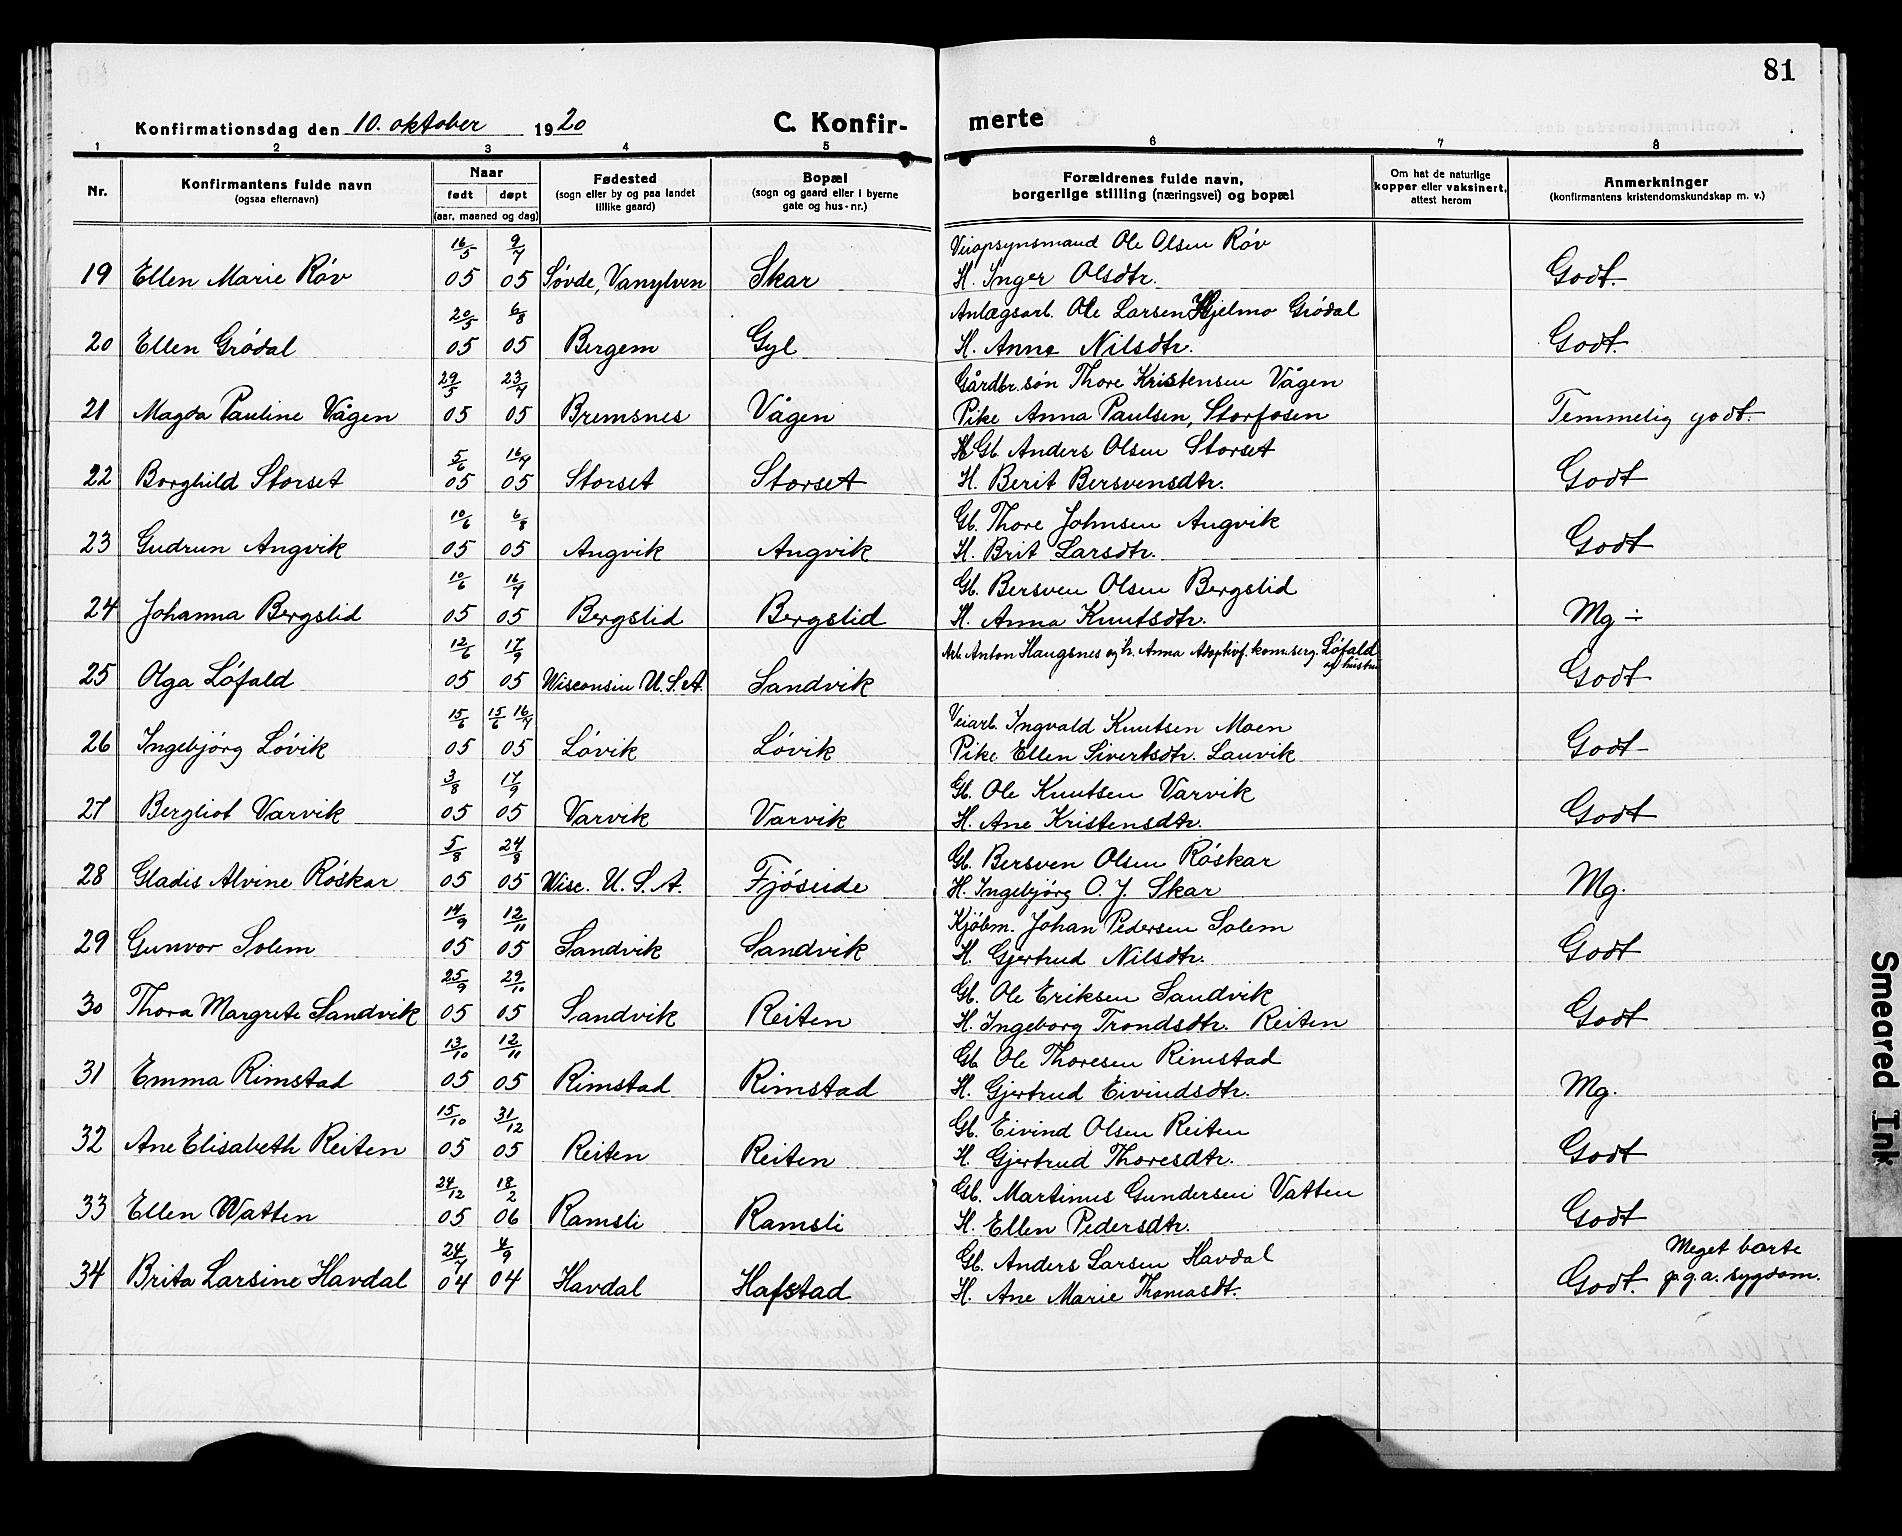 81
Konfirmationsdag den 10. oktober 1920 C. Konfir- merte
1 2 3 4 5 6 7 8
Nr. Konfirmantens fulde navn (ogsaa efternavn) Naar født døpt (aar, maaned og dag) Fødested (sogn eller by og paa landet tillike gaard) Bopæl (sogn og gaard eller i byerne gate og hus-nr.) Forældrenes fulde navn, borgerlige stilling (næringsvei) og bopæl Om hat de naturlige kopper eller vaksinert, attest herom Anmerkninger (konfirmantens kristendomskundskap m. v.)
16/5 9/7 Veiopsynsmand Ole Olsen Røv
19 Ellen Marie Røv 05 05 Søvde, Vanylven Skar H. Inger Olsdtr. Godt.
20/5 6/8 Anlægsarb. Ole Larsen Hjelmo Grødal
20 Ellen Grødal 05 05 Bergem Gyl H. Anne Nilsdtr. Godt.
29/5 23/7 Gårdbr.søn Thore Kristensen Vågen
21 Magda Pauline Vågen 05 05 Bremsnes Vågen Pike Anna Paulsen, Storfosen Temmelig godt.
5/6 16/7 Gb. Anders Olsen Storset
22 Borghild Storset 05 05 Storset Storset H. Berit Bersvensdtr. Godt
10/6 6/8 Gb. Thore Johnsen Angvik
23 Gudrun Angvik 05 05 Angvik Angvik H. Brit Larsdtr. Godt
10/6 16/7 Gb. Bersven Olsen Bergslid
24 Johanna Bergslid 05 05 Bergslid Bergslid H. Anna Knutsdtr. Mg ÷
12/6 17/9 Arb. Anton Haugsnes og h. Anna Adoptivf. kom.serg. Løfald og hustru
25 Olga Løfald 05 05 Wisconsin U.S.A. Sandvik Godt
15/6 15/6 16/7 Veiarb. Ingvald Knutsen Moen
26 Ingebjørg Løvik 05 05 Løvik Løvik Pike Ellen Sivertsdtr. Lauvik Godt
3/8 17/9 Gb. Ole Knutsen Varvik
27 Bergliot Varvik 05 05 Varvik Varvik H. Ane Kristensdtr. Godt
5/8 24/9 Gb. Bersven Olsen Røskar
28 Gladis Alvine Røskar 05 05 Wisc. U.S.A. Fjøseide H. Ingebjørg O. J. Skar Mg.
14/9 12/11 Kjøbm. Johan Pedersen Solem
29 Gunvor Solem 05 05 Sandvik Sandvik H. Gjertrud Nilsdtr. Godt
25/9 29/10 Gb. Ole Eriksen Sandvik
30 Thora Margrete Sandvik 05 05 Sandvik Reiten H. Ingeborg Trondsdtr. Reiten Godt
13/10 12/11 Gb. Ole Thoresen Rimstad
31 Emma Rimstad 05 05 Rimstad Rimstad H. Gjertrud Eivindsdtr. Mg.
15/10 31/12 Gb. Eivind Olsen Reiten
32 Ane Elisabeth Reiten 05 05 Reiten Reiten H. Gjertrud Thoresdtr. Godt
24/12 18/2 Gb. Martinus Gundersen Vatten
33 Ellen Watten 05 06 Ramsli Ramsli H. Ellen Pedersdtr. Godt
24/7 4/9 Gb. Anders Larsen Havdal Meget borte
34 Brita Larsine Havdal 04 04 Havdal Hafstad H. Ane Marie Thomasdt. Godt. p.g.a. sygdom.
Smeared Ink